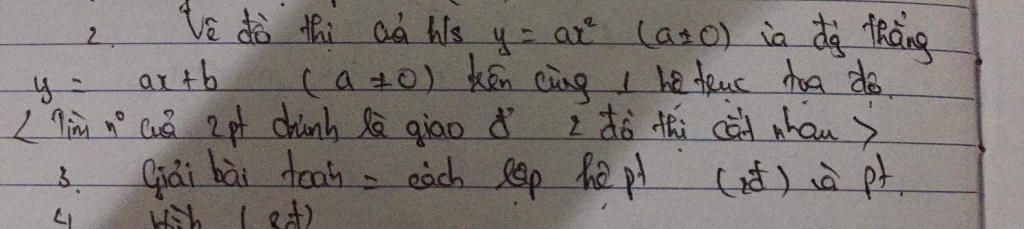 2. Vẽ đồ thị của h/s y = ax² (a≠0) và đg thẳng
y = ax+b (a ≠0) trên cùng 1 hệ trục tọa độ.
< Tìm nº của 2pt chính là giao đ' 2 đồ thị cắt nhau >
3. Giải bài toán = cách lập hệ pt (2đ) và pt.
4 Hình (3đ)